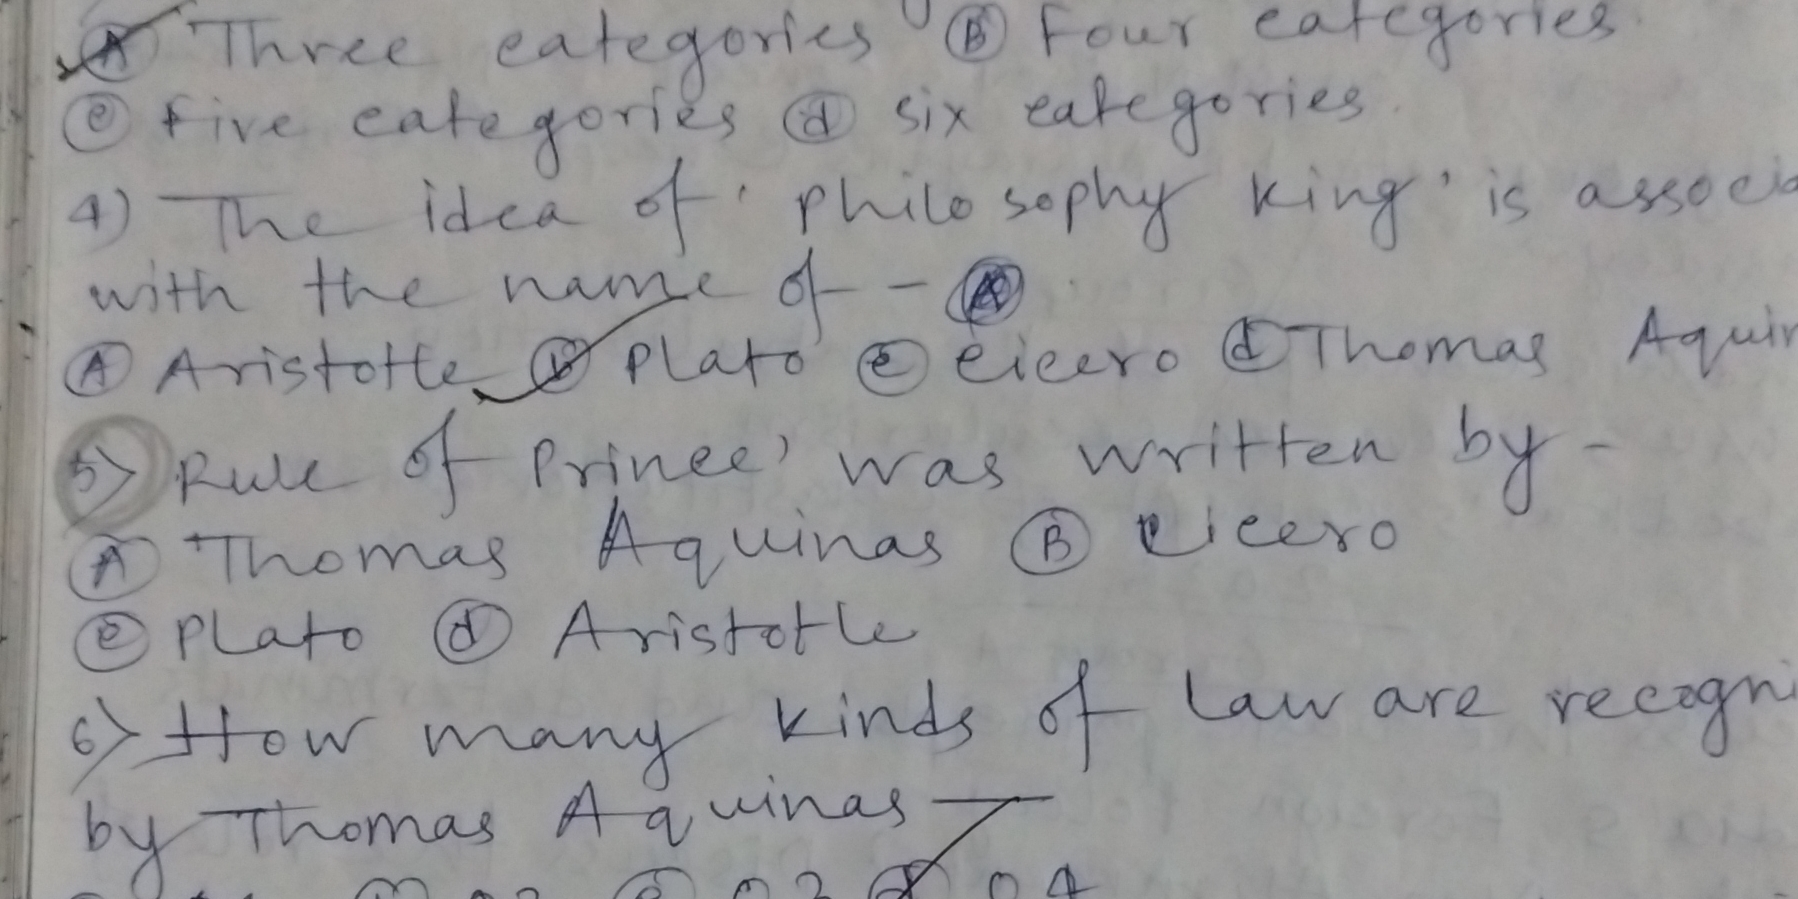 (A) Three categories (B) Four categories
(c) Five categories (d) six categories
4) The idea of 'philosophy king' is associa
with the name of - (A)
(A) Aristotle (b) Plato (c) cicero (d) Thomas Aquin
5) Rule of Prince' was written by -
(A) Thomas Aquinas (B) cicero
(c) Plato (d) Aristotle
6) How many kinds of law are recogni
by Thomas Aquinas —
03 (d) 04